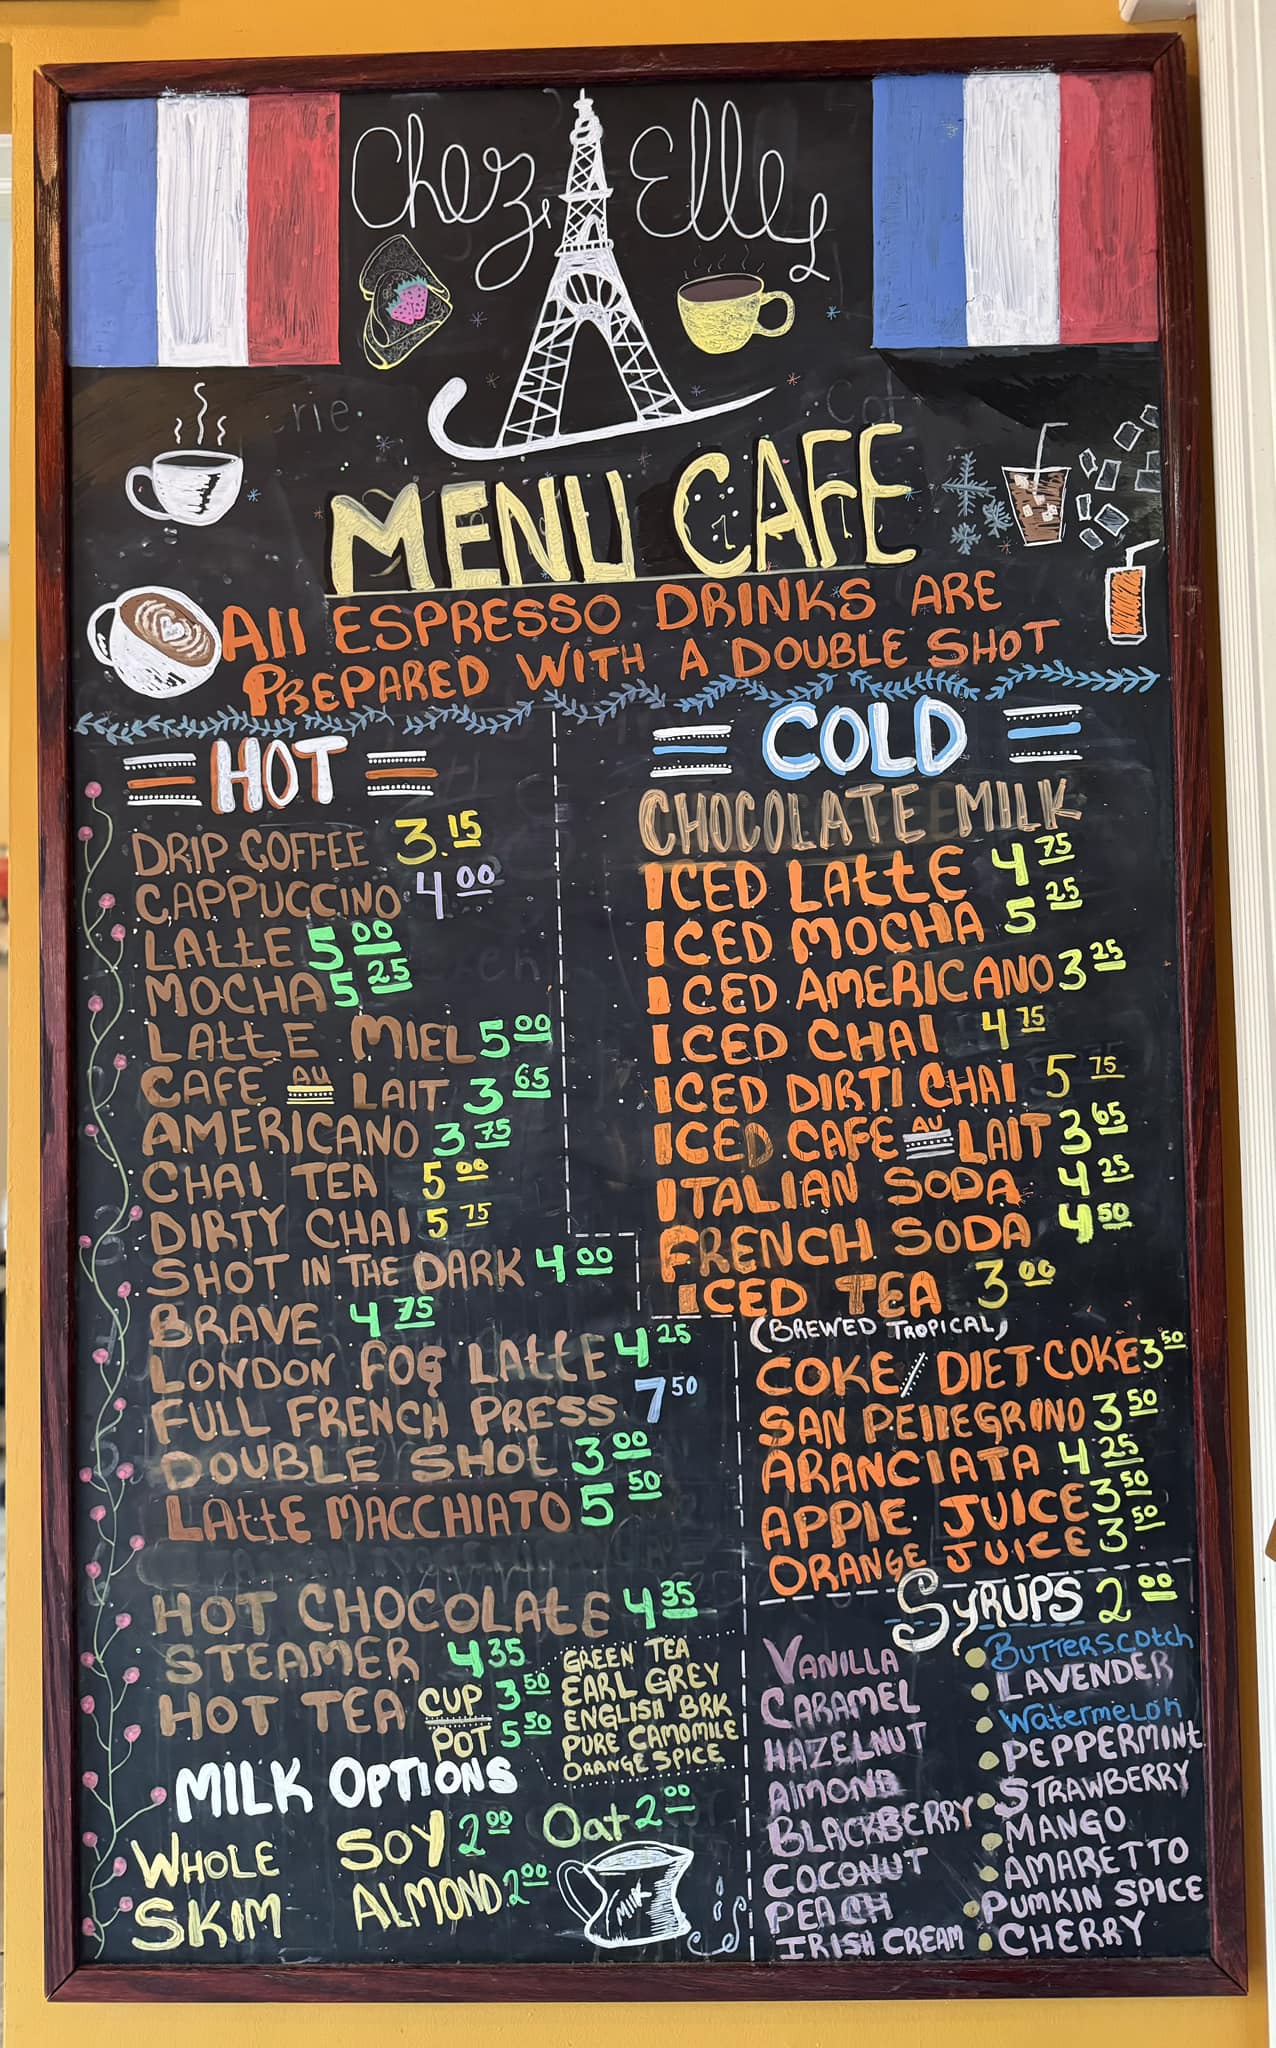 Chez Elle
MENU CAFE
All ESPRESSO DRINKS ARE
PREPARED WITH A DOUBLE SHOT
HOT
DRIP COFFEE 3.15
CAPPUCCINO 4 00
LATTE 5 00
MOCHA 5 25
LATTE MIEL 5 00
CAFE AU LAIT 3 65
AMERICANO 3 75
CHAI TEA 5 00
DIRTY CHAI 5 75
SHOT IN THE DARK 4 00
BRAVE 4 75
LONDON FOG LATTE 4 25
FULL FRENCH PRESS 7 50
DOUBLE SHOT 3 00
LATTE MACCHIATO 5 50
HOT CHOCOLATE 4 35
STEAMER 4 35
HOT TEA CUP 3 50
POT 5 50
GREEN TEA
EARL GREY
ENGLISH BRK
PURE CAMOMILE
ORANGE SPICE
MILK OPTIONS
WHOLE SOY 2 00 Oat 2 00
SKIM ALMOND 2 00
MILK
COLD
CHOCOLATE MILK
ICED LATTE 4 75
ICED MOCHA 5 25
ICED AMERICANO 3 25
ICED CHAI 4 75
ICED DIRTI CHAI 5 75
ICED CAFE AU LAIT 3 65
ITALIAN SODA 4 25
FRENCH SODA 4 50
ICED TEA 3 00
(BREWED TROPICAL)
COKE / DIET COKE 3 50
SAN PEllEGRINO 3 50
ARANCIATA 4 25
APPlE JUICE 3 50
ORANGE JUICE 3 50
SYRUPS 2 00
VANILLA
CARAMEL
HAZELNUT
AlMOND
BLACKBERRY
COCONUT
PEACH
IRISH CREAM
BUTTERSCOtch
LAVENDER
Watermelon
PEPPERMINT
STRAWBERRY
MANGO
AMARETTO
PUMKIN SPICE
CHERRY